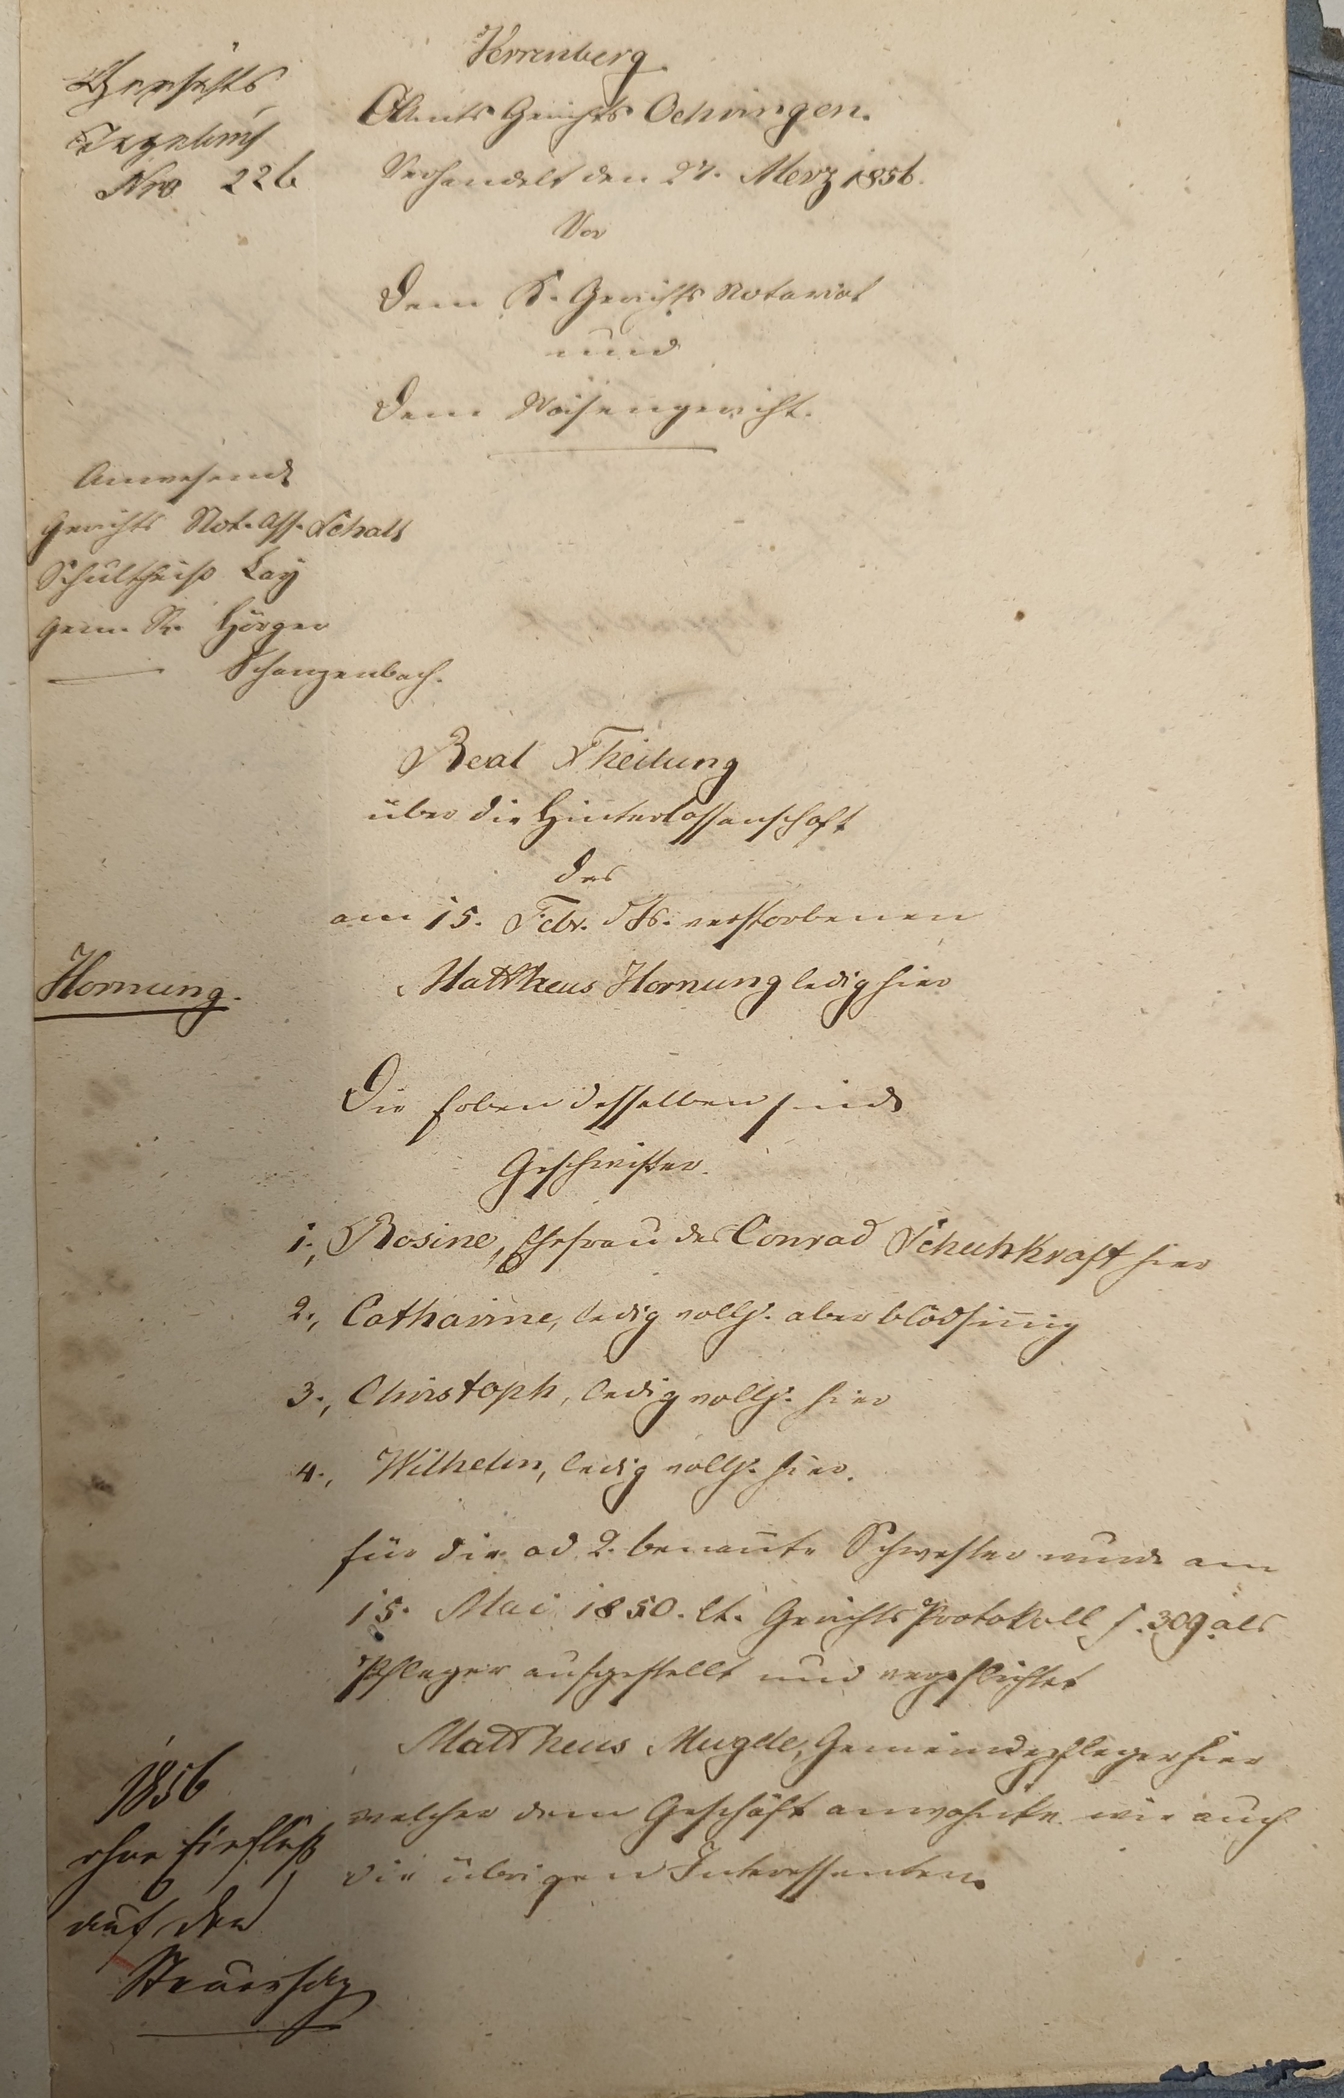 Verrenberg
OAmts Gerichts Oehringen.
Gerichts
Tagebuch
Nro 226
Verhandelt den 27. Merz 1856.
Vor
dem K. Gerichts Notariat
und
dem Waisengericht.
Anwesend
Gerichts Not. Ass. Schall
Schultheiß Lay
Gem. Rr. Hörger
Schanzenbach.
Real Theilung
über die Hinterlassenschaft
des
am 15. Febr. d Js. verstorbenen
Hornung.
Mattheus Hornung ledig hier
Die Erben desselben sind
Geschwister.
1., Rosine, Ehefrau des Conrad Schuhkraft hier
2., Catharine, ledig vollj. aber blödsin̄ig
3., Christoph, ledig vollj. hier
4., Wilhelm, ledig vollj. hier.
für die ad 2. benan̄te Schwester wurde am
15. Mai 1850. lt. Gerichts Protokoll S. 309. als
Pfleger aufgestellt und verpflichtet
Mattheus Mugele, Gemeindepfleger hier
welcher dem Geschäft anwohnte wie auch
die übrigen Interessenten.
1856
ohne Einfluß
auf den
Steuersatz